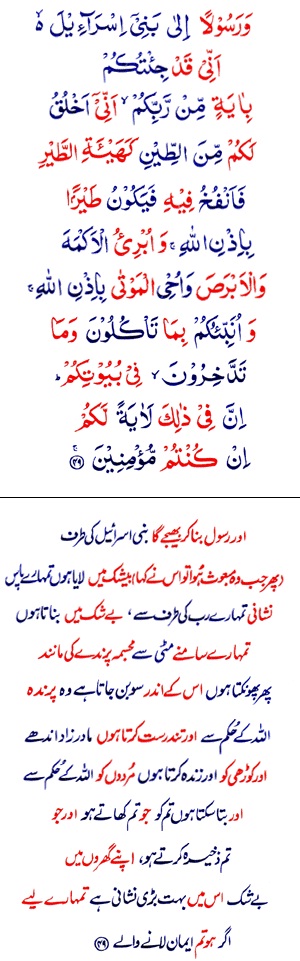 وَرَسُوْلًا اِلٰى بَنِىْٓ اِسْرَآءِيْلَ ۙ
اَنِّىْ قَدْ جِئْتُكُمْ
بِاٰيَةٍ مِّنْ رَّبِّكُمْ ۙ اَنِّىْٓ اَخْلُقُ
لَكُمْ مِّنَ الطِّيْنِ كَهَيْئَةِ الطَّيْرِ
فَاَنْفُخُ فِيْهِ فَيَكُوْنُ طَيْرًۢا
بِاِذْنِ اللّٰهِ ۚ وَ اُبْرِئُ الْاَكْمَهَ
وَالْاَبْرَصَ وَاُحْىِ الْمَوْتٰى بِاِذْنِ اللّٰهِ ۚ
وَ اُنَبِّئُكُمْ بِمَا تَاْكُلُوْنَ وَمَا
تَدَّخِرُوْنَ ۙ فِىْ بُيُوْتِكُمْ ؕ
اِنَّ فِىْ ذٰلِكَ لَاٰيَةً لَّكُمْ
اِنْ كُنْتُمْ مُّؤْمِنِيْنَ ۚ ﴿۴۹﴾
اور رسول بنا کر بھیجے گا بنی اسرائیل کی طرف
(پھر جب وہ مبعوث ہُوا تو اس نے کہا) بیشک میں لایا ہوں تمہارے پاس
نشانی تمہارے رب کی طرف سے، بے شک میں بناتا ہوں
تمہارے سامنے مٹی سے مجسمہ پرندے کی مانند
پھر پھونکتا ہوں اس کے اندر سو بن جاتا ہے وہ پرندہ
اللہ کے حُکم سے اور تندرست کرتا ہوں مادر زاد اندھے
اور کوڑھی کو اور زندہ کرتا ہوں مُردوں کو اللہ کے حُکم سے
اور بتا سکتا ہوں تم کو جو تم کھاتے ہو اور جو
تم ذخیرہ کرتے ہو، اپنے گھروں میں
بے شک اس میں بہت بڑی نشانی ہے تمہارے لیے
اگر ہو تم ایمان لانے والے ﴿۴۹﴾